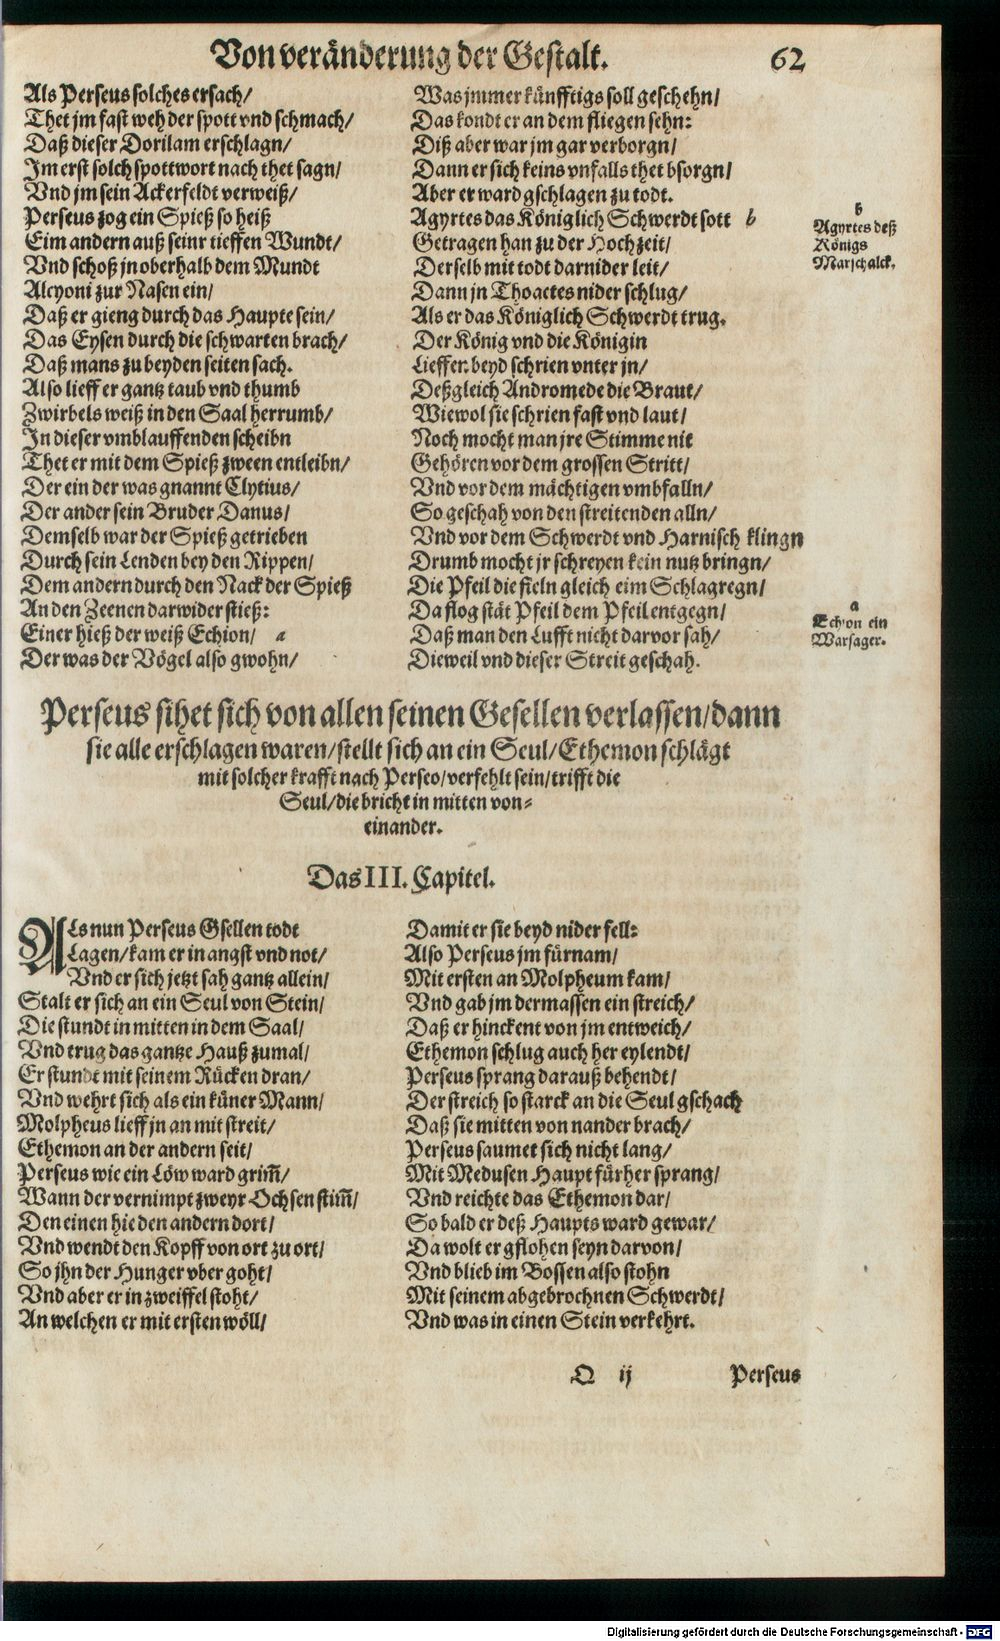 Von veränderung der Gestalt.
62
Als Perseus solches ersach/
Thet jm fast weh der spott vnd schmach/
Daß dieser Dorilam erschlagn/
Im erst solch spottwort nach thet sagn/
Vnd jm sein Ackerfeldt verweiß/
Perseus zog ein Spieß so heiß
Eim andern auß seinr tieffen Wundt/
Vnd schoß jn oberhalb dem Mundt
Alcyoni zur Nasen ein/
Daß er gieng durch das Haupte sein/
Das Eysen durch die schwarten brach/
Daß mans zu beyden seiten sach.
Also lieff er gantz taub vnd thumb
Zwirbels weiß in den Saal herrumb/
In dieser vmblauffenden scheibn
Thet er mit dem Spieß zween entleibn/
Der ein der was gnannt Clytius/
Der ander sein Bruder Danus/
Demselb war der Spieß getrieben
Durch sein Lenden bey den Rippen/
Dem andern durch den Nack der Spieß
An den Zeenen darwider stieß:
Einer hieß der weiß Echion/ a
Der was der Vögel also gwohn/
Was jmmer künfftigs soll geschehn/
Das kondt er an dem fliegen sehn:
Diß aber war jm gar verborgn/
Dann er sich keins vnfalls thet bsorgn/
Aber er ward gschlagen zu todt.
Agyrtes das Königlich Schwerdt sott b
Getragen han zu der Hochzeit/
Derselb mit todt darnider leit/
Dann jn Thoactes nider schlug/
Als er das Königlich Schwerdt trug.
Der König vnd die Königin
Lieffen beyd schrien vnter jn/
Deßgleich Andromede die Braut/
Wiewol sie schrien fast vnd laut/
Noch mocht man jre Stimme nit
Gehören vor dem grossen Stritt/
Vnd vor dem mächtigen vmbfalln/
So geschah von den streitenden alln/
Vnd vor dem Schwerdt vnd Harnisch klingn
Drumb mocht jr schreyen kein nutz bringn/
Die Pfeil die fieln gleich eim Schlagregn/
Da flog stät Pfeil dem Pfeil entgegn/
Daß man den Lufft nicht darvor sah/
Dieweil vnd dieser Streit geschah.
b
Agyrtes deß
Königs
Marschalck.
a
Echion ein
Warsager.
Perseus sihet sich von allen seinen Gesellen verlassen/dann
sie alle erschlagen waren/stellt sich an ein Seul/Ethemon schlägt
mit solcher krafft nach Perseo/verfehlt sein/trifft die
Seul/die bricht in mitten von-
einander.
Das III. Capitel.
ALs nun Perseus Gsellen todt
Lagen/kam er in angst vnd not/
Vnd er sich jetzt sah gantz allein/
Stalt er sich an ein Seul von Stein/
Die stundt in mitten in dem Saal/
Vnd trug das gantze Hauß zumal/
Er stundt mit seinem Rücken dran/
Vnd wehrt sich als ein küner Mann/
Molpheus lieff jn an mit streit/
Ethemon an der andern seit/
Perseus wie ein Löw ward grim̃/
Wann der vernimpt zweyr Ochsen stim̃/
Den einen hie den andern dort/
Vnd wendt den Kopff von ort zu ort/
So jhn der Hunger vber goht/
Vnd aber er in zweiffel stoht/
An welchen er mit ersten wöll/
Damit er sie beyd nider fell:
Also Perseus jm fürnam/
Mit ersten an Molpheum kam/
Vnd gab jm dermassen ein streich/
Daß er hinckent von jm entweich/
Ethemon schlug auch her eylendt/
Perseus sprang darauß behendt/
Der streich so starck an die Seul gschach
Daß sie mitten von nander brach/
Perseus saumet sich nicht lang/
Mit Medusen Haupt fürher sprang/
Vnd reichte das Ethemon dar/
So bald er deß Haupts ward gewar/
Da wolt er gflohen seyn darvon/
Vnd blieb im Bossen also stohn
Mit seinem abgebrochnen Schwerdt/
Vnd was in einen Stein verkehrt.
Q ij
Perseus
Digitalisierung gefördert durch die Deutsche Forschungsgemeinschaft - DFG